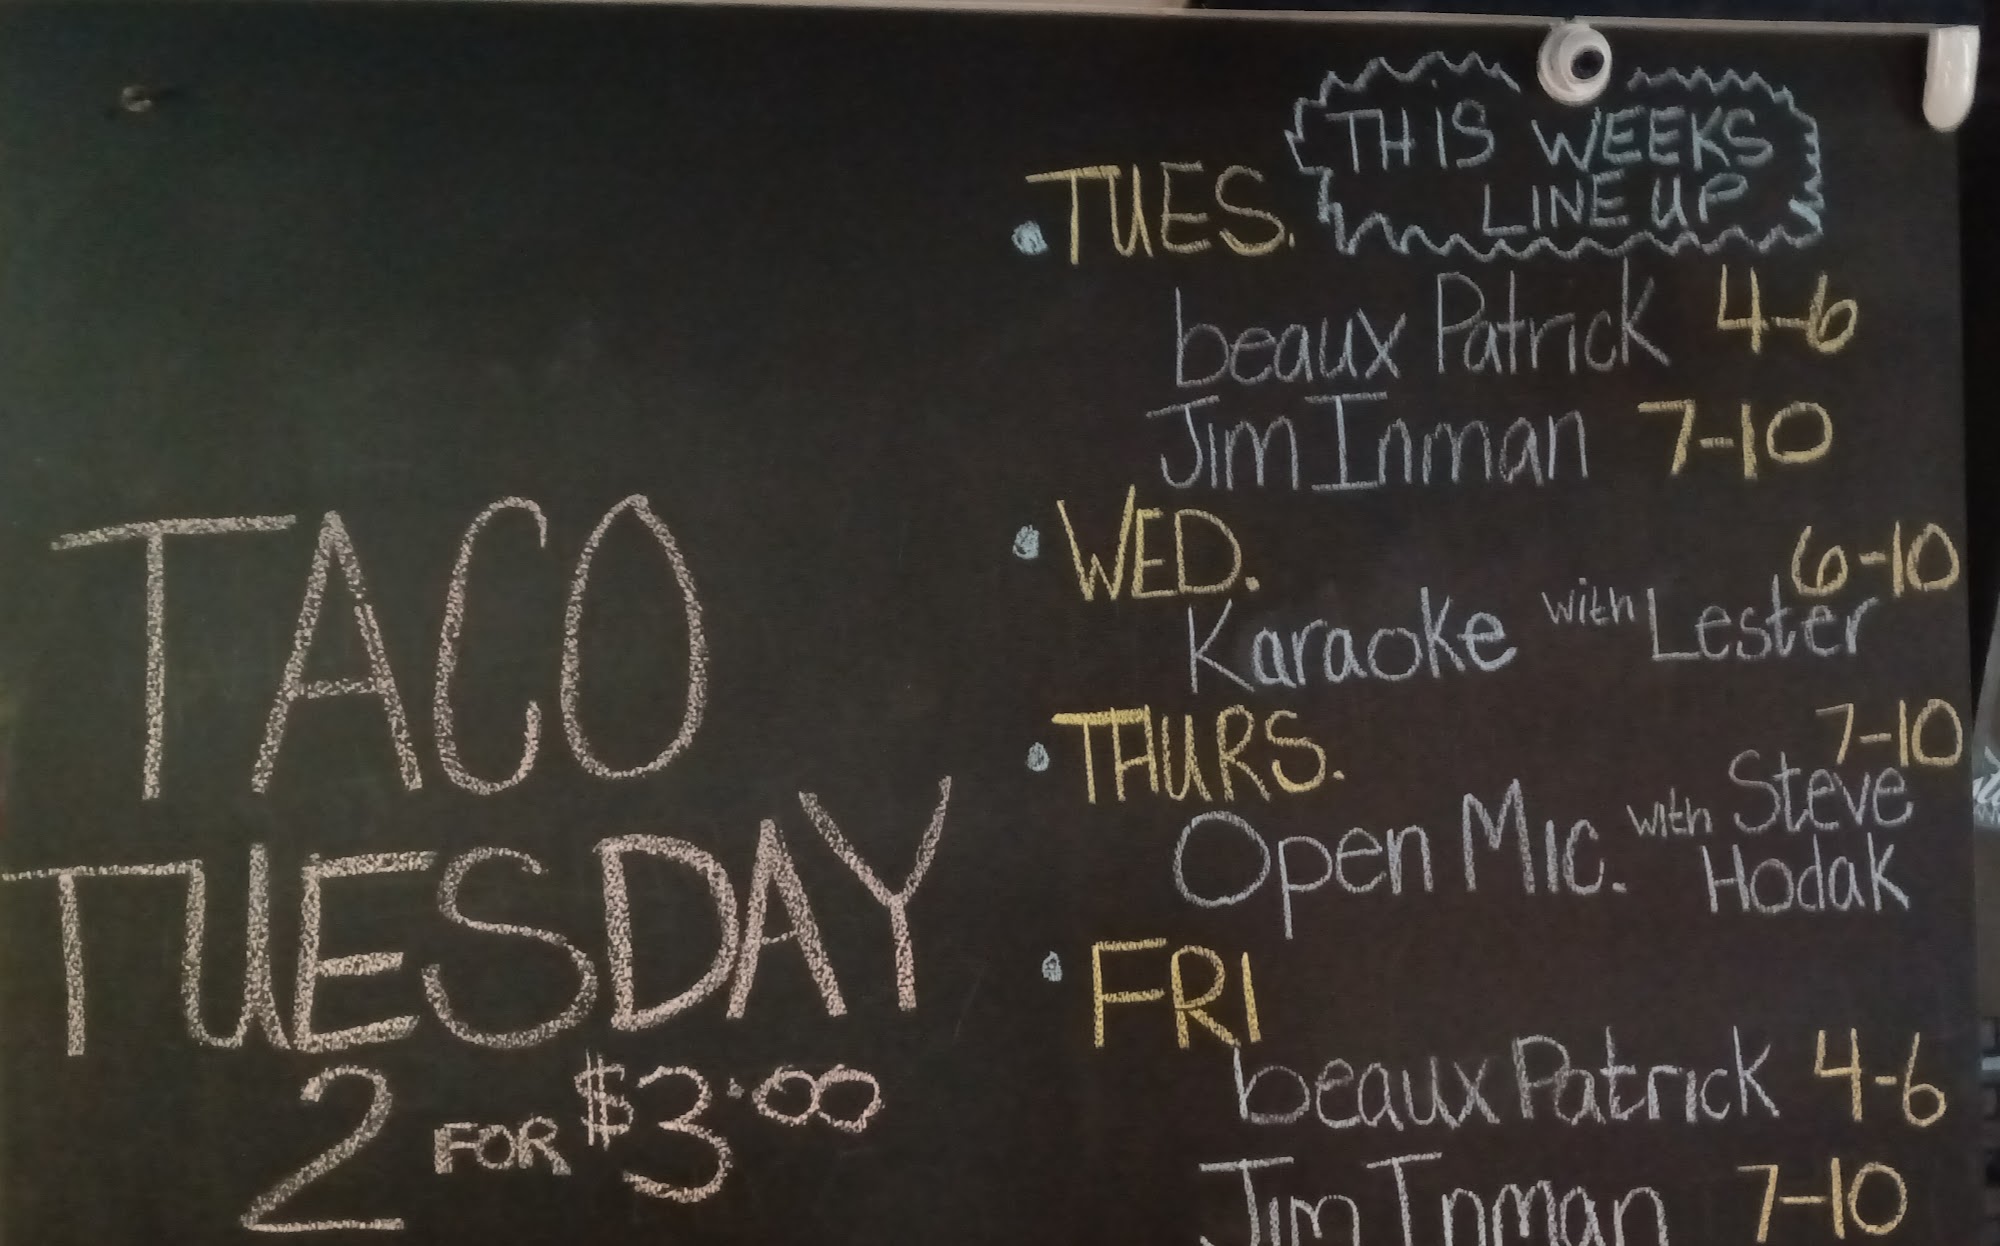 THIS WEEKS
LINE UP
TUES.
beaux Patrick 4-6
Jim Inman 7-10
WED. 6-10
Karaoke with Lester
THURS. 7-10
Open Mic. with Steve
Hodak
FRI
beaux Patrick 4-6
Jim Inman 7-10
TACO
TUESDAY
2 FOR $3.00